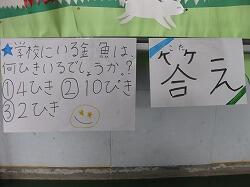 ★学校にいる金魚は、
何ひきいるでしょうか。?
①4ひき ②10ぴき
③2ひき
答え